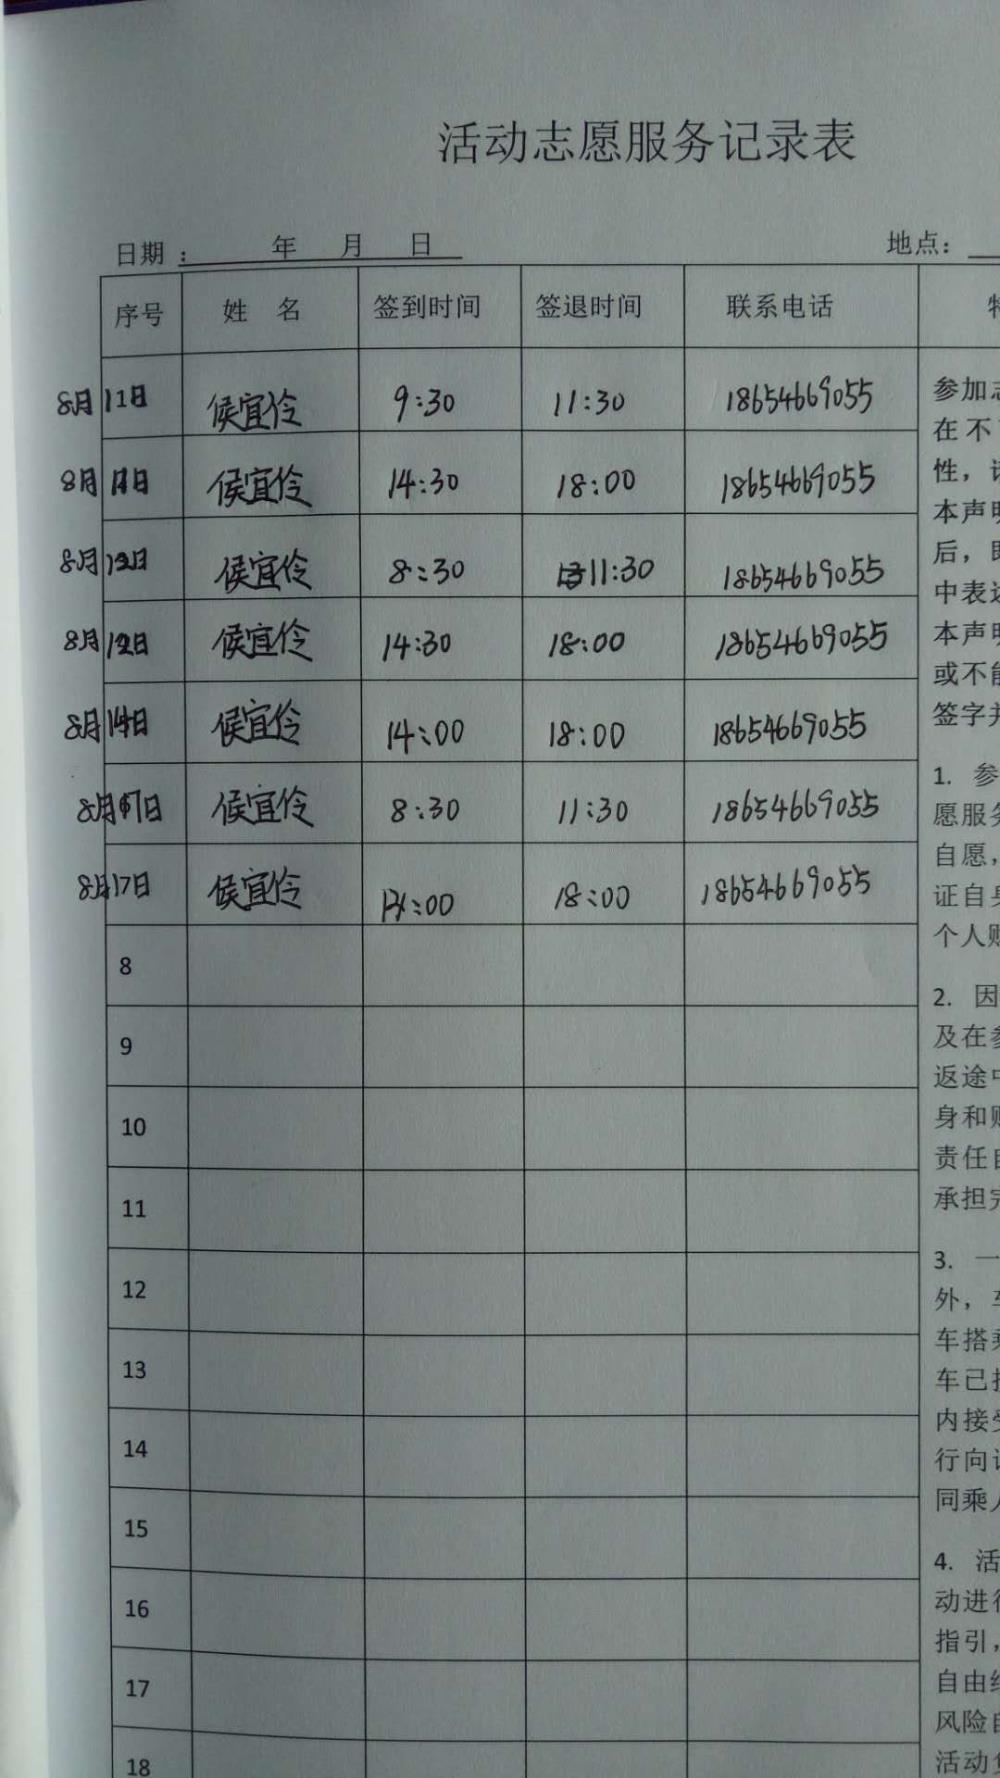 活动志愿服务记录表
日期： 年 月 日 地点：
序号 姓 名 签到时间 签退时间 联系电话
8月11日 侯宜伶 9:30 11:30 18654669055
8月11日 侯宜伶 14:30 18:00 18654669055
8月12日 侯宜伶 8:30 11:30 18654669055
8月12日 侯宜伶 14:30 18:00 18654669055
8月14日 侯宜伶 14:00 18:00 18654669055
8月17日 侯宜伶 8:30 11:30 18654669055
8月17日 侯宜伶 14:00 18:00 18654669055
8
9
10
11
12
13
14
15
16
17
18
参加志
在不
性，
本声明
后，
中表达
本声明
或不能
签字并
1. 参
愿服务
自愿，
证自身
个人
2. 因
及在参
返途中
身和
责任自
承担完
3. 一
外，车
车搭乘
车已
内接受
行向
同乘人
4. 活
动进行
指引，
自由
风险自
活动